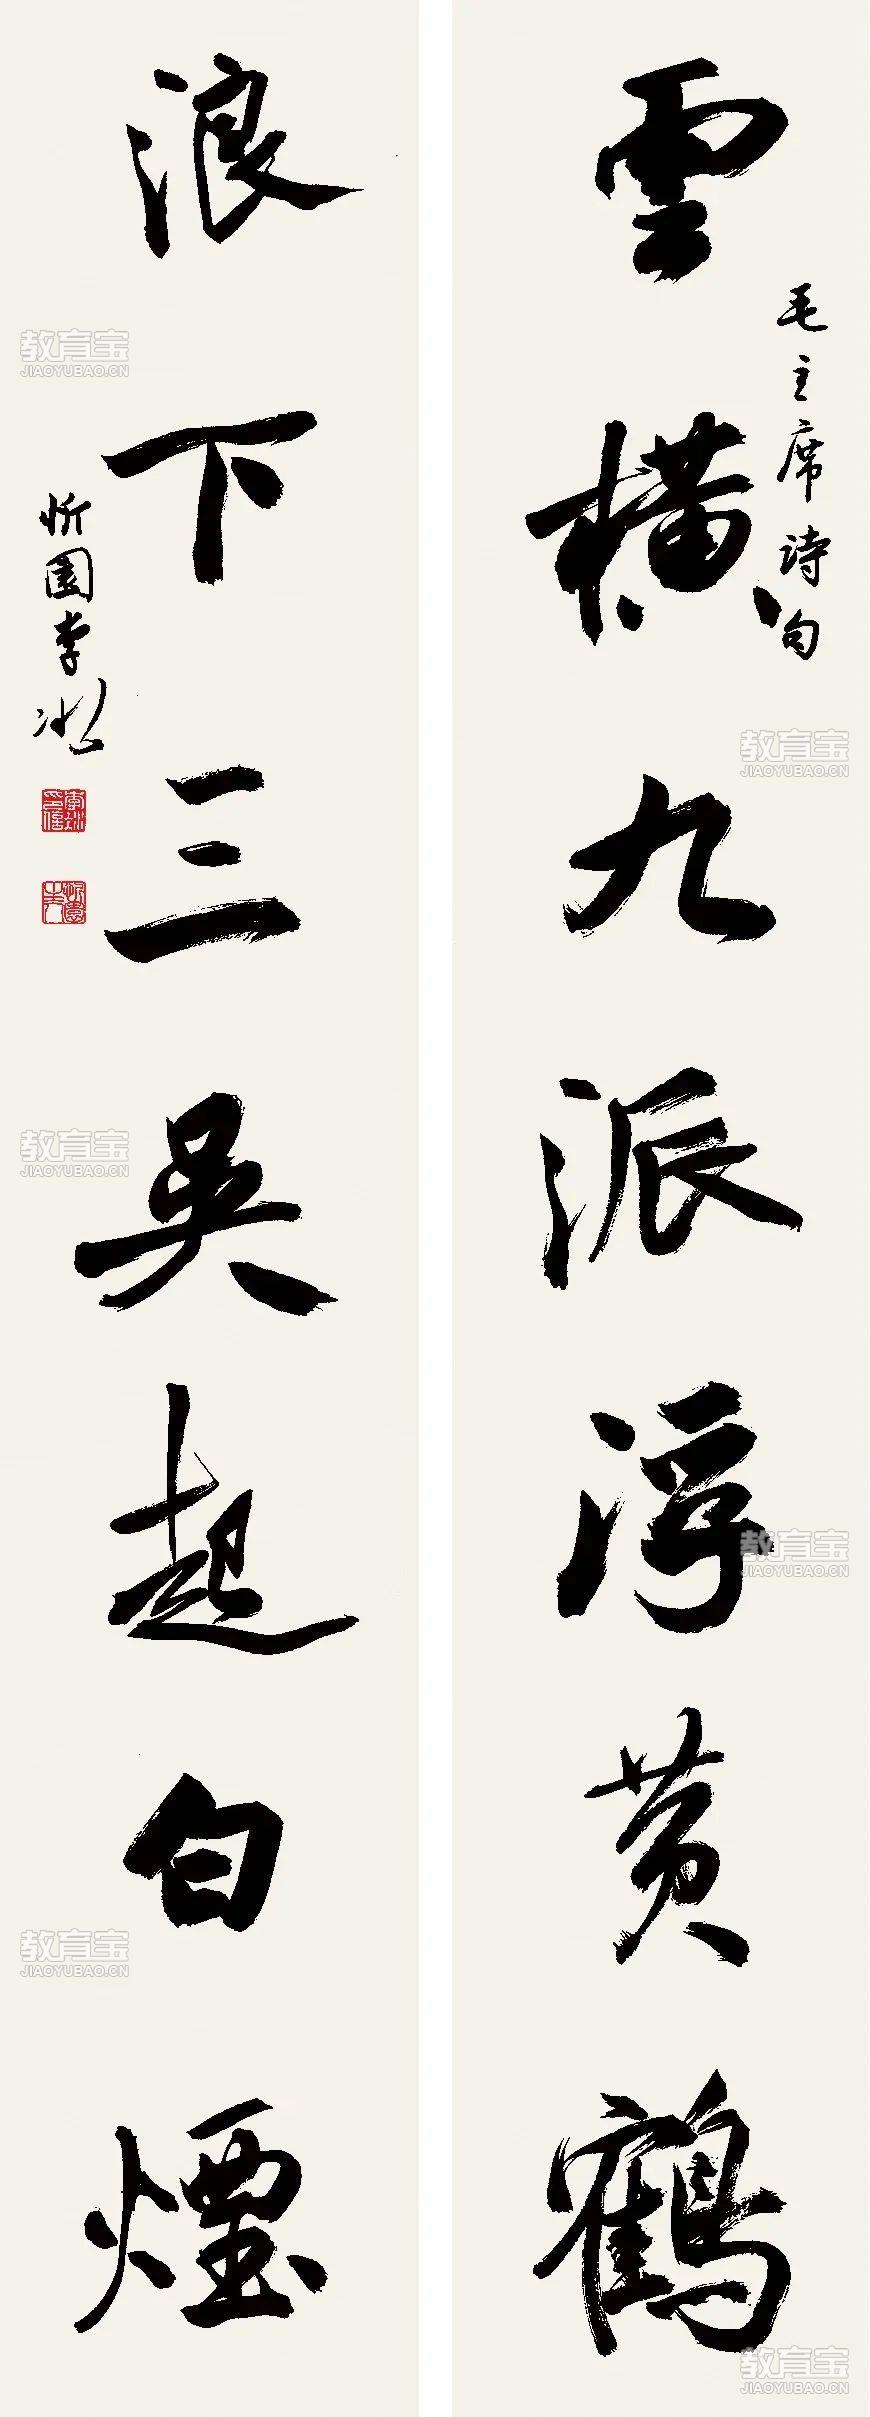 雲橫九派浮黄鶴
毛主席詩句
浪下三吳起白煙
忻園李
教育宝
JIAOYUBAO.CN
教育宝
JIAOYUBAO.CN
教育宝
JIAOYUBAO.CN
教育宝
JIAOYUBAO.CN
教育宝
JIAOYUBAO.CN
教育宝
JIAOYUBAO.CN